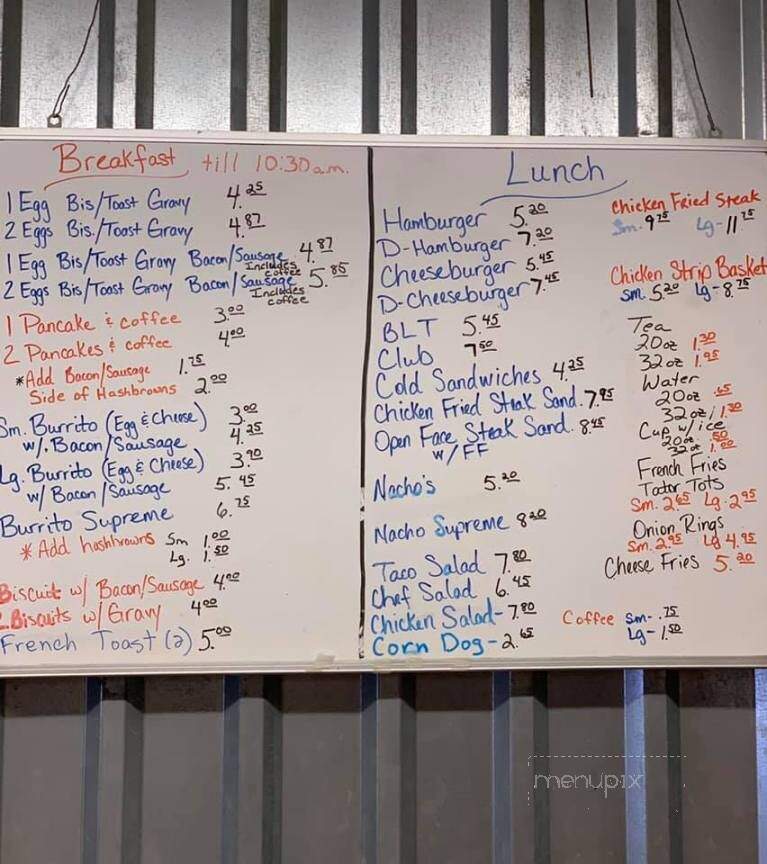 Breakfast till 10:30 a.m.
1 Egg Bis/Toast Gravy 4.25
2 Eggs Bis./Toast Gravy 4.87
1 Egg Bis/Toast Gravy Bacon/Sausage 4.87
Includes coffee
2 Eggs Bis/Toast Gravy Bacon/Sausage 5.85
Includes coffee
1 Pancake & coffee 3.00
2 Pancakes & coffee 4.00
*Add Bacon/Sausage 1.75
Side of Hashbrowns 2.00
Sm. Burrito (Egg & Cheese) 3.00
w/. Bacon/Sausage 4.25
Lg. Burrito (Egg & Cheese) 3.90
w/ Bacon/Sausage 5.45
Burrito Supreme 6.75
* Add hashbrowns Sm 1.00
Lg. 1.50
Biscuit w/ Bacon/Sausage 4.00
2 Biscuits w/Gravy 4.00
French Toast (2) 5.00
Lunch
Hamburger 5.20
D-Hamburger 7.20
Cheeseburger 5.45
D-Cheeseburger 7.45
BLT 5.45
Club 7.50
Cold Sandwiches 4.25
Chicken Fried Steak Sand. 7.95
Open Face Steak Sand. 8.45
w/FF
Nacho's 5.20
Nacho Supreme 8.20
Taco Salad 7.80
Chef Salad 6.45
Chicken Salad- 7.80
Corn Dog- 2.65
Chicken Fried Steak
Sm. 9.75 Lg- 11.75
Chicken Strip Basket
Sm 5.20 Lg- 8.75
Tea
20oz 1.30
32oz 1.95
Water
20oz .65
32oz 1.30
Cup w/ice
20oz .50
32oz 1.00
French Fries
Tator Tots
Sm. 2.65 Lg. 2.95
Onion Rings
Sm. 2.95 Lg 4.95
Cheese Fries 5.20
Coffee Sm- .75
Lg- 1.50
menupix